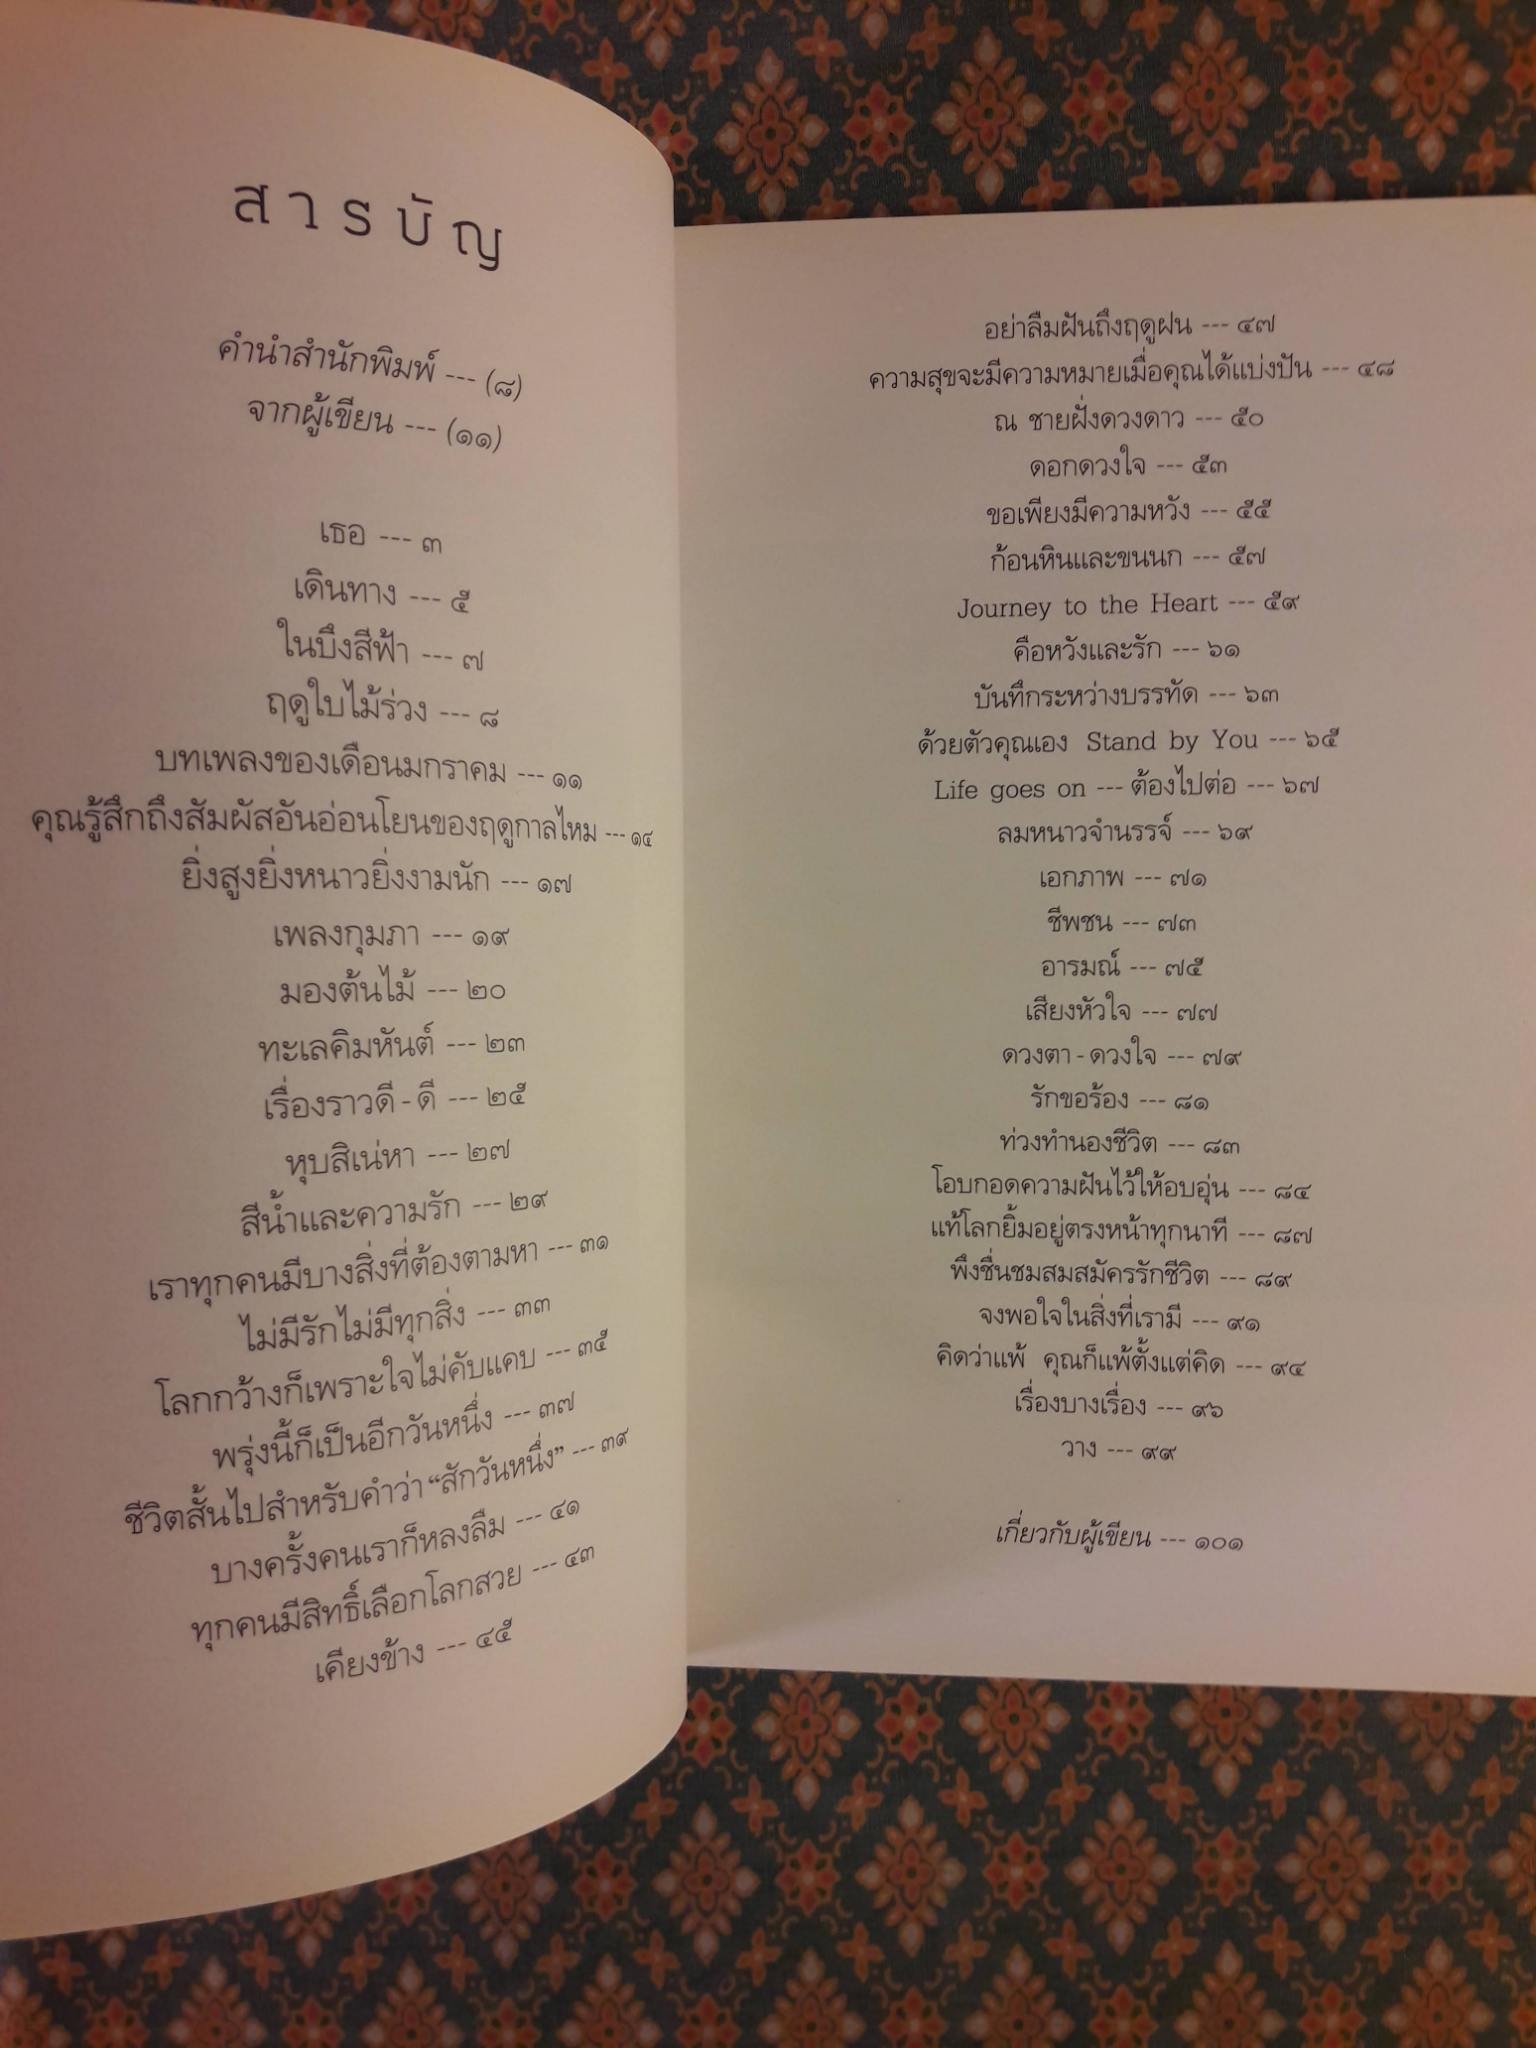 สารบัญ
คำนำสำนักพิมพ์ --- (๘)
จากผู้เขียน --- (๑๑)
เธอ --- ๓
เดินทาง --- ๕
ในบึงสีฟ้า --- ๗
ฤดูใบไม้ร่วง --- ๘
บทเพลงของเดือนมกราคม --- ๑๑
คุณรู้สึกถึงสัมผัสอันอ่อนโยนของฤดูกาลไหม --- ๑๔
ยิ่งสูงยิ่งหนาวยิ่งงามนัก --- ๑๗
เพลงกุมภา --- ๑๙
มองต้นไม้ --- ๒๐
ทะเลคิมหันต์ --- ๒๓
เรื่องราวดี - ดี --- ๒๕
หุบสิเน่หา --- ๒๗
สีน้ำและความรัก --- ๒๙
เราทุกคนมีบางสิ่งที่ต้องตามหา --- ๓๑
ไม่มีรักไม่มีทุกสิ่ง --- ๓๓
โลกกว้างก็เพราะใจไม่คับแคบ --- ๓๕
พรุ่งนี้ก็เป็นอีกวันหนึ่ง --- ๓๗
ชีวิตสั้นไปสำหรับคำว่า “สักวันหนึ่ง” --- ๓๙
บางครั้งคนเราก็หลงลืม --- ๔๑
ทุกคนมีสิทธิ์เลือกโลกสวย --- ๔๓
เคียงข้าง --- ๔๕
อย่าลืมฝันถึงฤดูฝน --- ๔๗
ความสุขจะมีความหมายเมื่อคุณได้แบ่งปัน --- ๔๘
ณ ชายฝั่งดวงดาว --- ๕๐
ดอกดวงใจ --- ๕๓
ขอเพียงมีความหวัง --- ๕๕
ก้อนหินและขนนก --- ๕๗
Journey to the Heart --- ๕๙
คือหวังและรัก --- ๖๑
บันทึกระหว่างบรรทัด --- ๖๓
ด้วยตัวคุณเอง Stand by You --- ๖๕
Life goes on --- ต้องไปต่อ --- ๖๗
ลมหนาวจำนรรจ์ --- ๖๙
เอกภาพ --- ๗๑
ชีพชน --- ๗๓
อารมณ์ --- ๗๕
เสียงหัวใจ --- ๗๗
ดวงตา - ดวงใจ --- ๗๙
รักขอร้อง --- ๘๑
ท่วงทำนองชีวิต --- ๘๓
โอบกอดความฝันไว้ให้อบอุ่น --- ๘๔
แท้โลกยิ้มอยู่ตรงหน้าทุกนาที --- ๘๗
พึงชื่นชมสมสมัครรักชีวิต --- ๘๙
จงพอใจในสิ่งที่เรามี --- ๙๑
คิดว่าแพ้ คุณก็แพ้ตั้งแต่คิด --- ๙๔
เรื่องบางเรื่อง --- ๙๖
วาง --- ๙๙
เกี่ยวกับผู้เขียน --- ๑๐๑